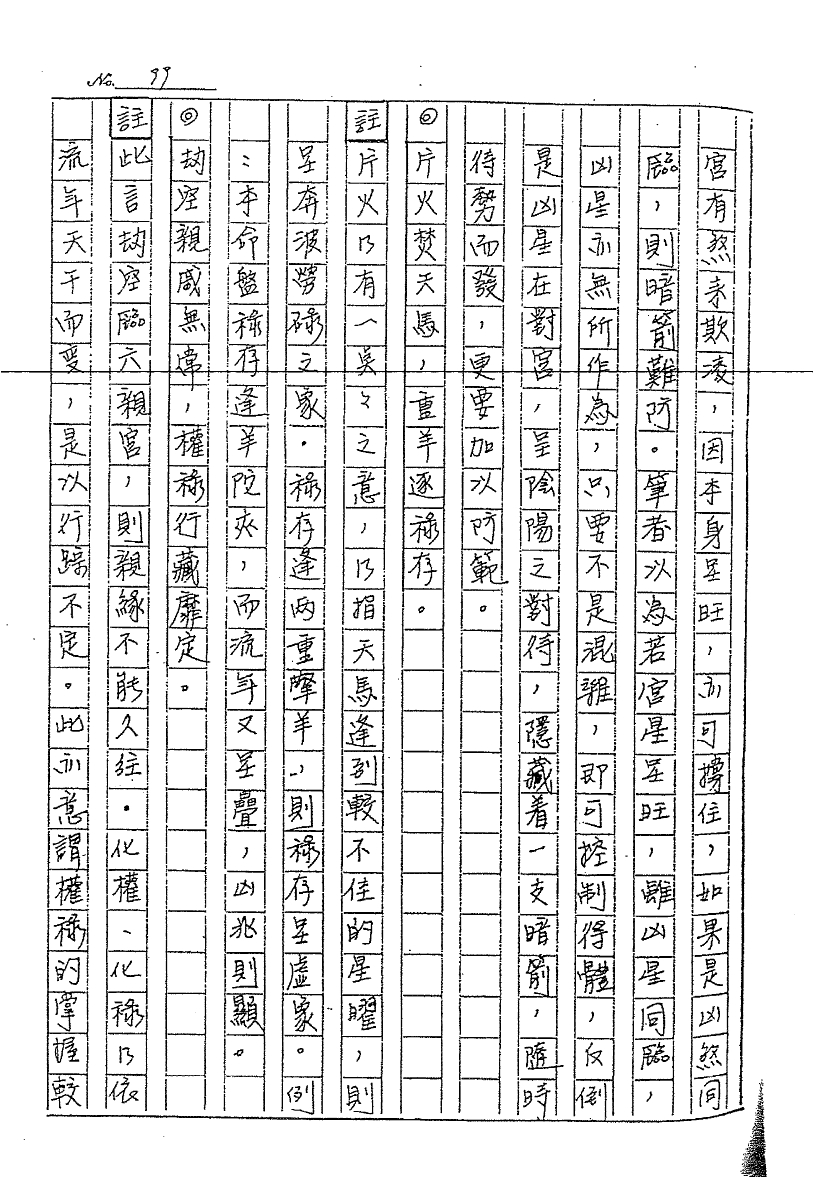 No. 99
宮有煞來欺凌，因本身呈旺，亦可擋住，如果是凶煞同
臨，則暗箭難防。筆者以為若宮星呈旺，雖凶星同臨，
凶星亦無所作為，只要不是混雜，即可控制得體，反倒
是凶星在對宮，呈陰陽之對待，隱藏着一支暗箭，隨時
待勢而發，更要加以防範。
◎片火焚天馬，重羊逐祿存。
註片火乃有一吳々之意，乃指天馬逢到較不佳的星曜，則
呈奔波勞碌之象。祿存逢两重擎羊，則祿存呈虛象。例
：本命盤祿存逢羊陀夾，而流年又呈疊，凶兆則顯。
◎劫空親咸無常，權祿行藏靡定。
註此言劫空臨六親宮，則親緣不能久往。化權、化祿乃依
流年天干而变，是以行踪不定。此亦意謂權祿的掌握較